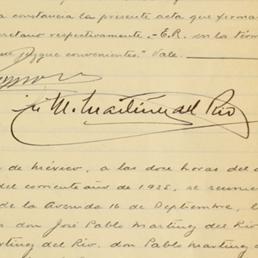 a constancia la presente acta que firman
cretario respectivamente.-E.R. en la térm
juzgue convenientes." Vale.
J. M. Martínez del Río
de México, a las doce horas del d
del corriente año de 1925, se reunie
de la Avenida 16 de Septiembre, l
don José Pablo Martínez del Río
rtínez del Río, don Pablo Martínez d